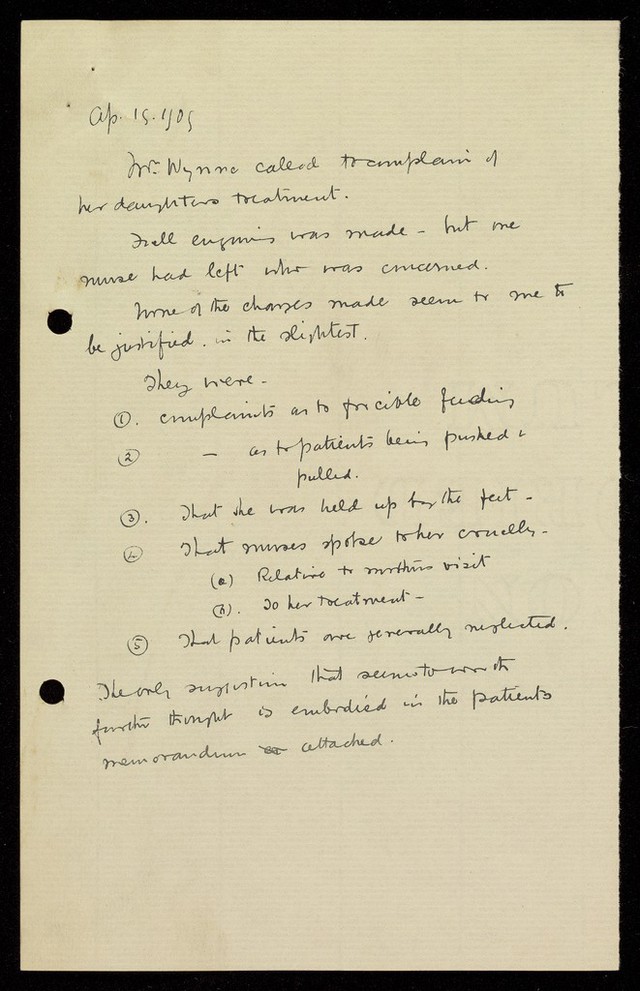 Ap. 15. 1905
Mrs Wynne called to complain of
her daughters treatment.
Full enquiries was made - but one
nurse had left who was concerned.
None of the charges made seem to me to
be justified. in the slightest.
They were -
①. complaints as to forcible feeding
② — as to patients being pushed &
pulled.
③. That she was held up by the feet -
④ That nurses spoke to her cruelly -
(a) Relative to mothers visit
(b). To her treatment -
⑤ That patients are generally neglected.
The only suggestion that seems to worth
further thought is embodied in the patients
memorandum attached.